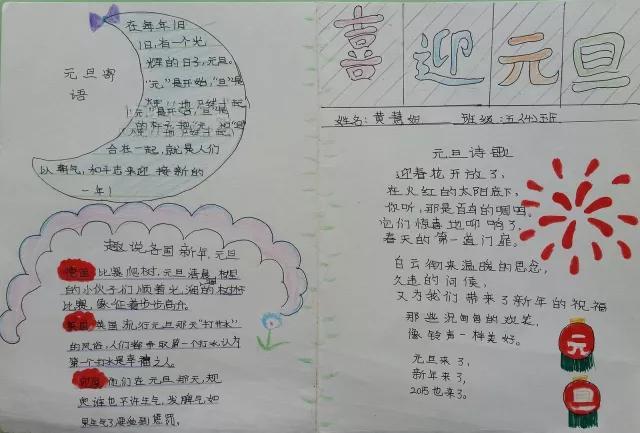 元旦寄
语
在每年1月
1日,有一个光
辉的日子,元旦。
“元”是开始,“旦”是
合在一起,就是人们
以朝气,如千古来迎接新的
一年!
趣说各国新年,元旦
德国:比赛爬树,元旦清晨,
的小伙子们顺着光
比赛,象征着步步高升。
英国:英国流行元旦那天“打井水”
的风俗,人们都争取第一个打水认为
第一个打水是幸福之人。
他们在元旦那天,规
定谁也不许生气,发脾气,如
果生气了要受到惩罚。
喜迎元旦
姓名:黄慧如 班级:五(4)班
元旦诗歌
迎春花开放了,
在火红的太阳底下,
你听,那是百鸟的啁啁。
它们惊喜地叩响了,
春天的第一道门扉。
白云衔来温暖的思念,
久违的问候,
又为我们带来了新年的祝福
那些沉甸甸的欢笑,
像铃声一样美好。
元旦来了,
新年来了,
2015也来了。
元
旦